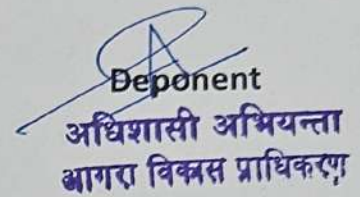 Deponent
अधिशासी अभियन्ता
आगरा विकास प्राधिकरण